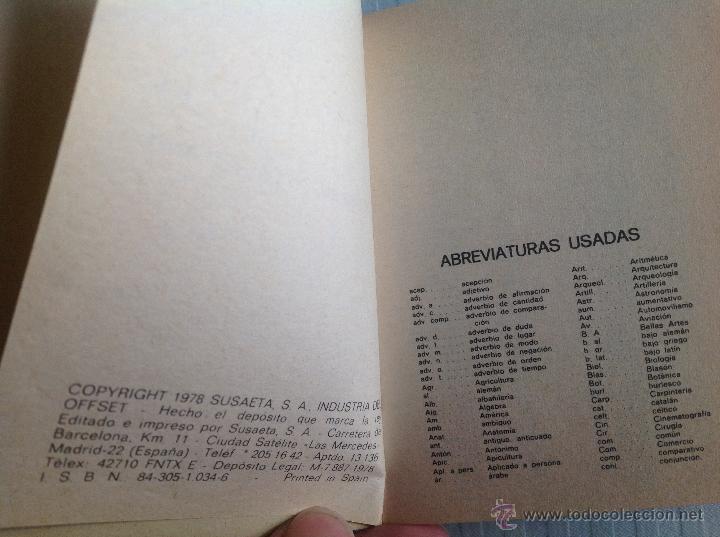 COPYRIGHT 1978 SUSAETA, S. A. INDUSTRIA DEL
OFFSET - Hecho el depósito que marca la ley
Editado e impreso por Susaeta, S. A. - Carretera de
Barcelona, Km. 11 - Ciudad Satélite «Las Mercedes»
Madrid-22 (España) - Teléf 205 16 42 - Aptdo. 13.136
Télex: 42710 FNTX E - Depósito Legal: M-7.887/1978
I. S. B. N. 84-305-1.034-6 - Printed in Spain
ABREVIATURAS USADAS
acep. acepción
adj. adjetivo
adv. a adverbio de afirmación
adv. c. adverbio de cantidad
adv. comp. adverbio de compara-
ción
adv. d. adverbio de duda
adv. l. adverbio de lugar
adv. m. adverbio de modo
adv. n. adverbio de negación
adv. o. adverbio de orden
adv. t. adverbio de tiempo
Agr. Agricultura
al. alemán
Alb. albañilería
Alg. Algebra
Am. América
amb. ambiguo
Anat. Anatomía
ant. antiguo, anticuado
Antón. Antónimo
Apic. Apicultura
Apl. a pers. Aplicado a persona
ár. árabe
Arit. Aritmética
Arq. Arquitectura
Arqueol. Arqueología
Artill. Artillería
Astr. Astronomía
aum. aumentativo
Aut. Automovilismo
Av. Aviación
B. A. Bellas Artes
b. al. bajo alemán
b. gr. bajo griego
b. lat. bajo latín
Biol. Biología
Blas. Blasón
Bot. Botánica
burl. burlesco
Carp. Carpintería
cat. catalán
celt. céltico
Cin. Cinematografía
Cir. Cirugía
com. común
Com. Comercio
comp. comparativo
conj. conjunción.
www.todocoleccion.net